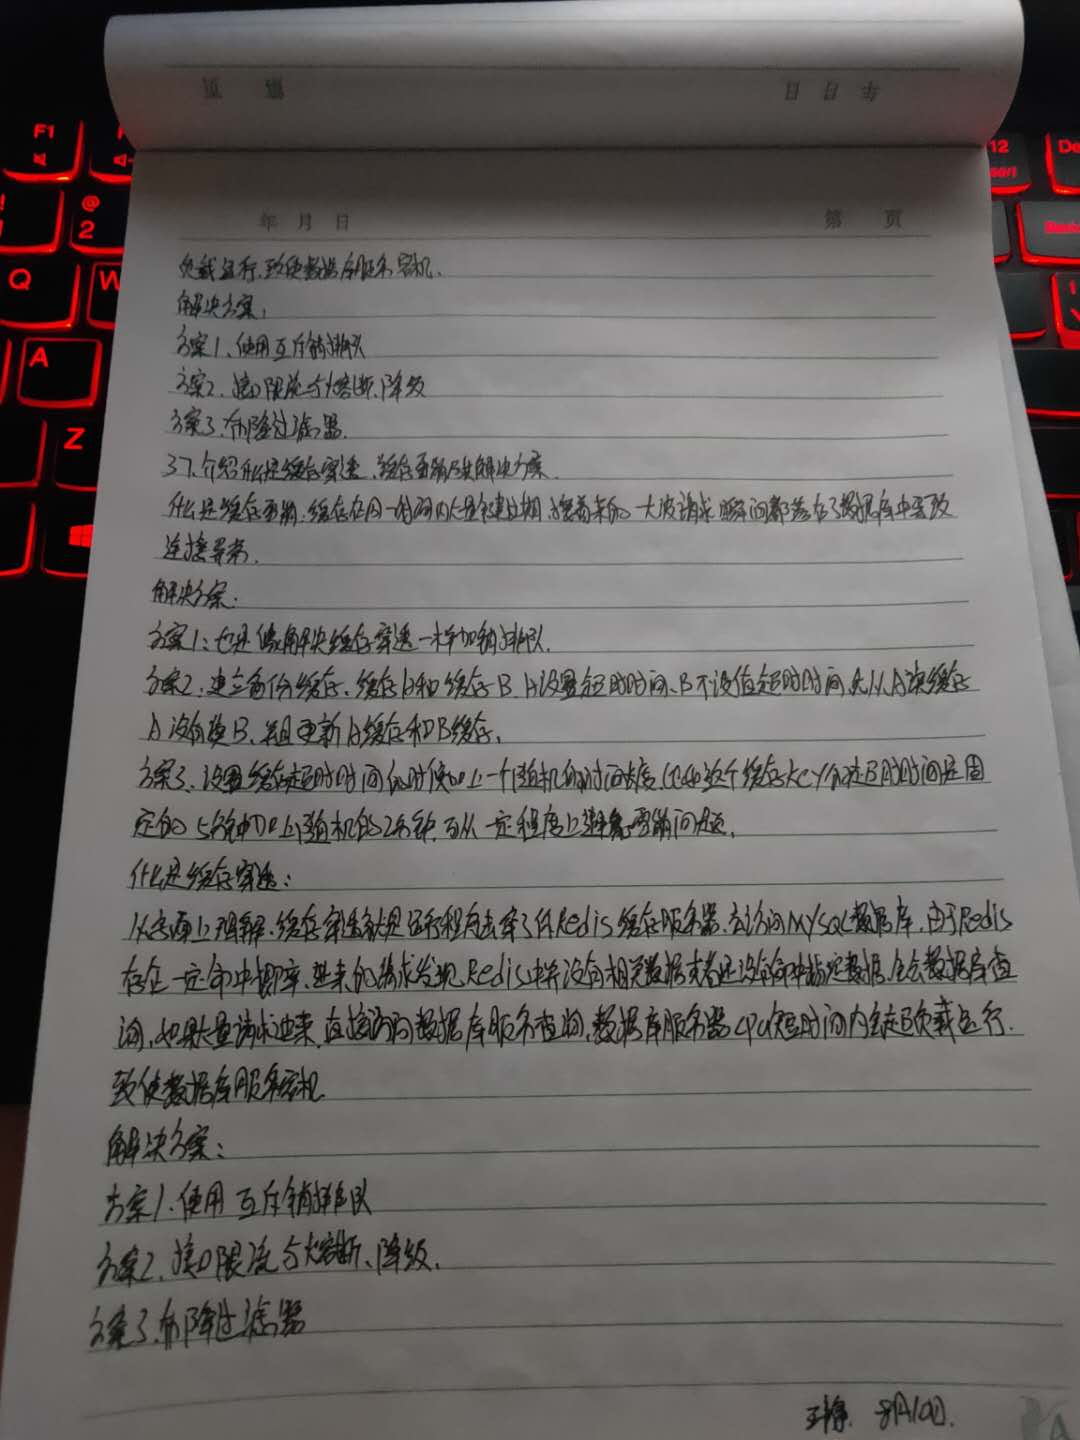 年 月 日 第 页
负载运行,致使数据库服务宕机.
解决方案:
方案1、使用互斥锁排队
方案2、接口限流与熔断、降级
方案3、布隆过滤器.
37、介绍什么是缓存穿透、缓存雪崩及其解决方案.
什么是缓存雪崩:缓存在同一时间内大量键过期,接着来的一大波请求瞬间都落在了数据库中导致
连接异常.
解决方案:
方案1:也是像解决缓存穿透一样加锁排队.
方案2:建立备份缓存,缓存A和缓存B,A设置超时时间,B不设值超时时间,先从A读缓存
A没有读B,并且更新A缓存和B缓存.
方案3、设置缓存超时时间的时候加上一个随机的时间长度,比如这个缓存key的超时时间是固
定的5分钟加上随机的2分钟,可从一定程度上避免雪崩问题.
什么是缓存穿透:
从字面上理解,缓存穿透就是运行程序去穿了件Redis缓存服务器,去访问MySQL数据库,由于Redis
存在一定命中概率,进来的请求发现Redis中并没有相关数据或者还没有命中指定数据,会去数据库查
询,如果大量请求进来,直接访问数据库服务查询,数据库服务器CPU短时间内会超负载运行.
致使数据库服务宕机
解决方案:
方案1、使用互斥锁排队
方案2、接口限流与熔断、降级.
方案3、布隆过滤器
8月10日.
F1
12
De
!
@
2
Q
W
A
Z